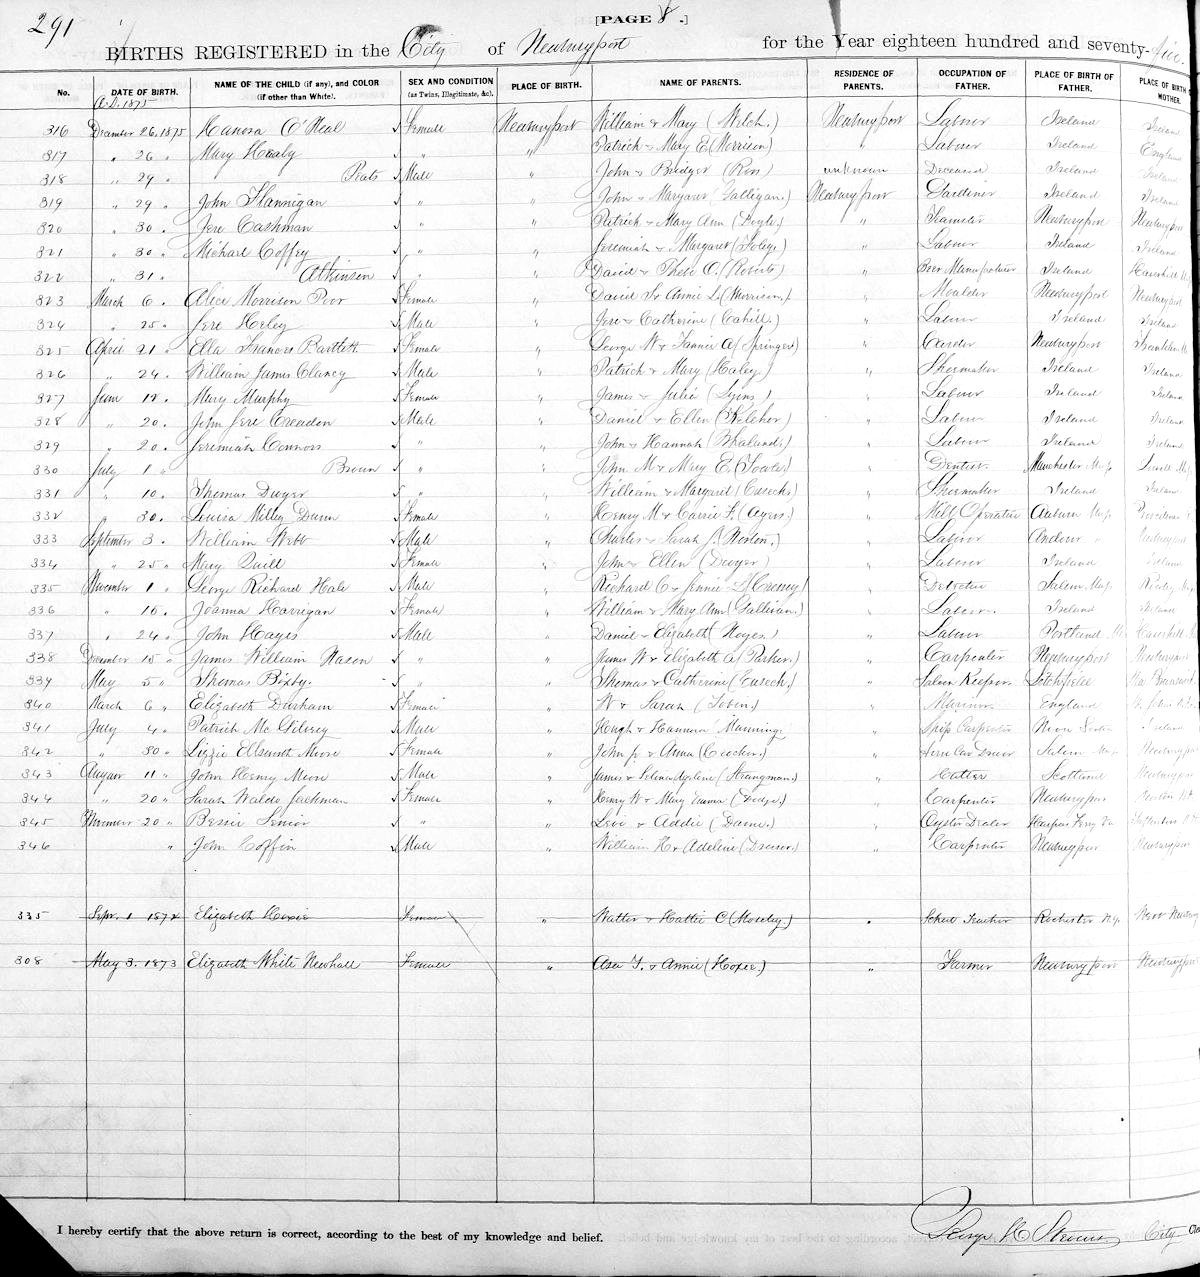 291
[PAGE 8.]
BIRTHS REGISTERED in the City of Newburyport for the Year eighteen hundred and seventy-five.
No. DATE OF BIRTH. NAME OF THE CHILD (if any), and COLOR (if other than White). SEX AND CONDITION (as Twins, Illegitimate, &c). PLACE OF BIRTH. NAME OF PARENTS. RESIDENCE OF PARENTS. OCCUPATION OF FATHER. PLACE OF BIRTH OF FATHER. PLACE OF BIRTH OF MOTHER.
A.D. 1875
316 December 26, 1875 Hanora O'Neal Female Newburyport William & Mary (Welch.) Newburyport Labour Ireland Ireland
317 " 26 " Mary Healy " " Patrick & Mary E. (Morrison) " Labour Ireland England
318 " 29 " Peats Male " John & Bridget (Ross) unknown Deceased Ireland Ireland
319 " 29 " John Flannigan " " John & Margaret (Galligan) Newburyport Gardener Ireland Ireland
320 " 30 " Jere Cashman " " Patrick & Mary Ann (Doyle) " Teamster Newburyport Newburyport
321 " 30 " Michael Coffey " " Jeremiah & Margaret (Foley) " Labour Ireland Ireland
322 " 31 " Atkinson " " David & Phebe O. (Roberts) " Beer Manufacturer Ireland Haverhill
323 March 6 " Alice Morrison Poor Female " David Jr Annie L. (Morrison) " Moulder Newburyport Newburyport
324 " 25 " Jere Heley Male " Jere & Catherine (Cahill.) " Labour Ireland Ireland
325 April 21 " Ella Frances Bartlett Female " George W. & Fannie A (Springer) " Carder Newburyport Franklin
326 " 24 " William James Clancy Male " Patrick & Mary (Haley) " Shoemaker Ireland Ireland
327 June 12 " Mary Murphy Female " James & Julia (Lyons) " Labour Ireland Ireland
328 " 20 " John Jere Creadon Male " Daniel & Ellen (Kelcher) " Labour Ireland Ireland
329 " 20 " Jeremiah Connors " " John & Hannah " Labour Ireland Ireland
330 July 1 " Brown " " John M & Mary E. (Fowler) " Dentist Manchester Lowell
331 " 10 " Thomas Dwyer " " William & Margaret (Cusech) " Shoemaker Ireland Ireland
332 " 30 " Louisa Dunn Female " Henry M & Carrie F. (Ayers.) " Mill Operative Auburn
333 September 3 " William Webb Male " Charles & Sarah J. (Norton.) " Labour Andover " Newburyport
334 " 25 " Mary Quill Female " John & Ellen (Dwyer) " Labour Ireland Ireland
335 November 1 " George Richard Hale Male " Richard C & Annie L. " Detective Salem
336 " 16 " Joanna Harrigan Female " William & Mary Ann (Sullivan.) " Labour. Ireland Ireland
337 " 24 " John Hayes Male " Daniel & Elizabeth (Noyes) " Labour Portland Haverhill
338 December 15 " James William Nason " " James W & Elizabeth A (Parker.) " Carpenter Newburyport Newburyport
339 May 5 " Thomas Bixby " " Thomas & Catherine (Cusech.) " Saloon Keeper Litchfield New Brunswick
340 March 6 " Elizabeth Durham Female " W & Sarah (Tobin) " Mariner England
341 July 4 " Patrick Mc Gilvrey Male " Hough & Hannora Manning " Ship Carpenter Nova Scotia Ireland
342 " 30 " Lizzie Ellsworth Moore Female " John Jr & Anna " Horse Car Driver Salem Newburyport
343 August 11 " John Henry Moore Male " James & (Strangman.) " Hatter Scotland Newburyport
344 " 20 " Sarah Waldo Jackman Female " Henry W & Mary Emma (Dodge.) " Carpenter Newburyport
345 November 20 " Bessie Senior " " Levi & Addie " Oyster Dealer Harpers Ferry Va.
346 " John Coffin Male " William H & Adeline " Carpenter Newburyport Newburyport
335 Sept. 1 1872 Elizabeth Hoxie Female " Walter & Hattie C (Moseley.) " School Teacher Rochester N.Y.
308 May 3. 1873 Elizabeth White Newhall Female " Asa T. & Annie (Hoxie.) " Farmer Newburyport Newburyport
I hereby certify that the above return is correct, according to the best of my knowledge and belief. George H. Stevens City Cle